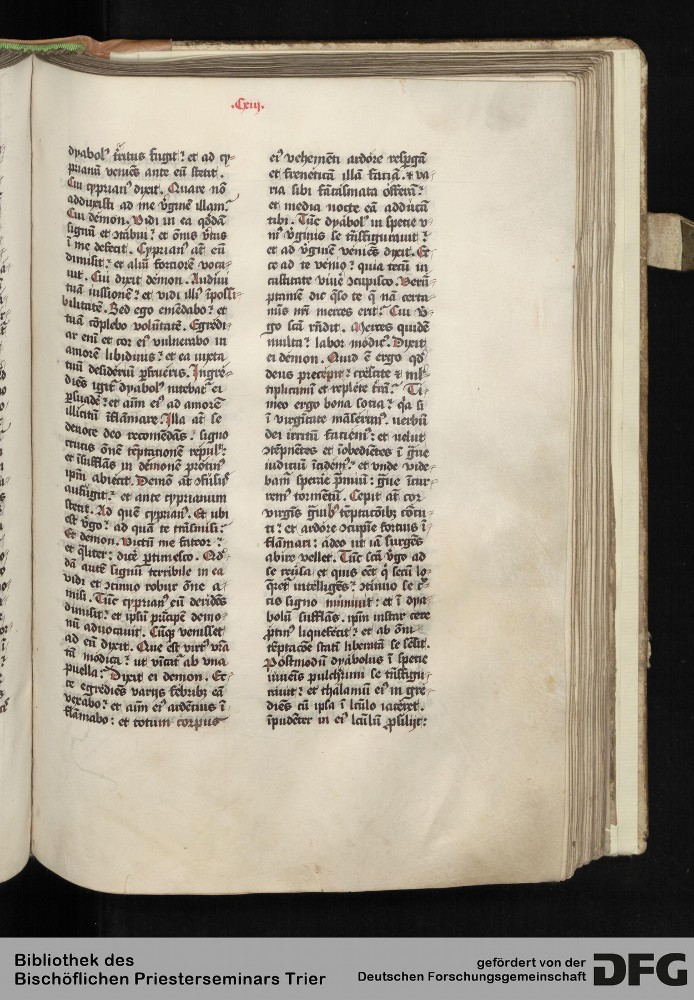 .Cxiij.
dyabolꝰ t͛ritus fugit: et ad cy-
prianū veniēs ante eū stetit.
Cui cyprianꝰ dixit. Quare nō
adduxisti ad me v͛ginē illam:
Cui demon. Vidi in ea q̄ddā
signū et ꝯtabui: et ōnis v͛tus
ī me defecit. Cyprianꝰ at̄ eū
dimisit: et aliū fortiorē voca-
uit. Cui dixit demon. Audiui
tuā iussionē: et vidi illiꝰ īpossi-
bilitatē. Sed ego emēdabo: et
tuā cōplebo volūtatē. Egredi-
ar em̄ et cor eiꝰ vulnerabo in
amorē libidinis: et ea iuxta
tuū desideriū ꝑfrueris. Ingre-
diēs igit᷑ dyabolꝰ nitebat᷑ ei
ꝑsuadē: et aīm eiꝰ ad amorē
illicitū īflāmare. Illa at̄ se
deuote deo recomēdās. signo
crucis ōnē tēptationē repulit:
et īsufflās in demonē protinꝰ
ip̄m abiecit. Demō at̄ ꝯfusꝰ
aufugit: et ante cyprianum
stetit. Ad quē cyprianꝰ. Et ubi
est v͛go: ad quā te trāsmisi:
Et demon. Victū me fateor:
et q̄liter: dicē ꝑtimesco. Qd̄-
dā autē signū terribile in ea
vidi et ꝯtinuo robur ōne a-
misi. Tūc cyprianꝰ eū deridēs
dimisit: et ip̄m pͥncipē demo-
nū aduocauit. Cūqꝫ venisset
ad eū dixit. Que est virtꝰ vr̄a
tā modica: ut vīcat᷑ ab una
puella: Dixit ei demon. Ec-
ce egrediēs varijs febribꝫ eā
vexabo: et aīm eiꝰ ardētius ī-
flāmabo: et totum corpus
eiꝰ vehemēti ardore resꝑgā
et freneticā illā faciā. ⁊ va-
ria sibi fātasmata offerā:
et media nocte eā adducā
tibi. Tūc dyabolꝰ in specie v-
niꝰ v͛ginis se trāsfigurauit:
et ad v͛ginē veniēs dixit. Ec-
ce ad te venio: quia tecū in
castitate viuē ꝯcupisco. Verū-
ptamē dic q̄so te q̄ nā certa-
minis nr̄i merces erit: Cui v͛-
go scā rn̄dit. Merces quidē
multa: labor modicꝰ. Dixit
ei demon. Quid ē ergo qd̄
deus precepit: crescite ⁊ ml̕-
tiplicamī et replete t͛rā: Ti-
meo ergo bona socia: qꝫ si
ī virgītate māserimꝰ. uerbū
dei irritū faciemꝰ: et velut
ꝯtēpnētes et īobediētes ī gͣue
iudiciū īcidemꝰ: et vnde vide-
bam᷑ sperare p̄miū: gͣue īcur-
remꝰ tormētū. Cepit at̄ cor
virgīs gͣuibꝫ tēptacōibꝫ cōcu-
ti: et ardore ꝯcupīe fortius ī-
flāmari: adeo ut iā surgēs
abire vellet. Tūc scā v͛go ad
se reu͛sa et quis eēt q̄ secū lo-
q̄ret᷑ intelligēs: ꝯtinuo se c͛-
cis signo muniuit: et ī dya-
bolū sufflās. ip̄m instar cere
ꝓtinꝰ liquefecit: et ab ōni
tēptacōe statī liberatā se sēsit.
Postmodū dyabolus ī specie
iuuēis pulcherrimi se trāsfigu-
rauit: et thalamū eiꝰ in gre-
diēs cū ipsa ī lc̄ulo iaceret.
īpudēter in eiꝰ lc̄ulū ꝓsilijt:
Bibliothek des
Bischöflichen Priesterseminars Trier
gefördert von der
Deutschen Forschungsgemeinschaft
DFG